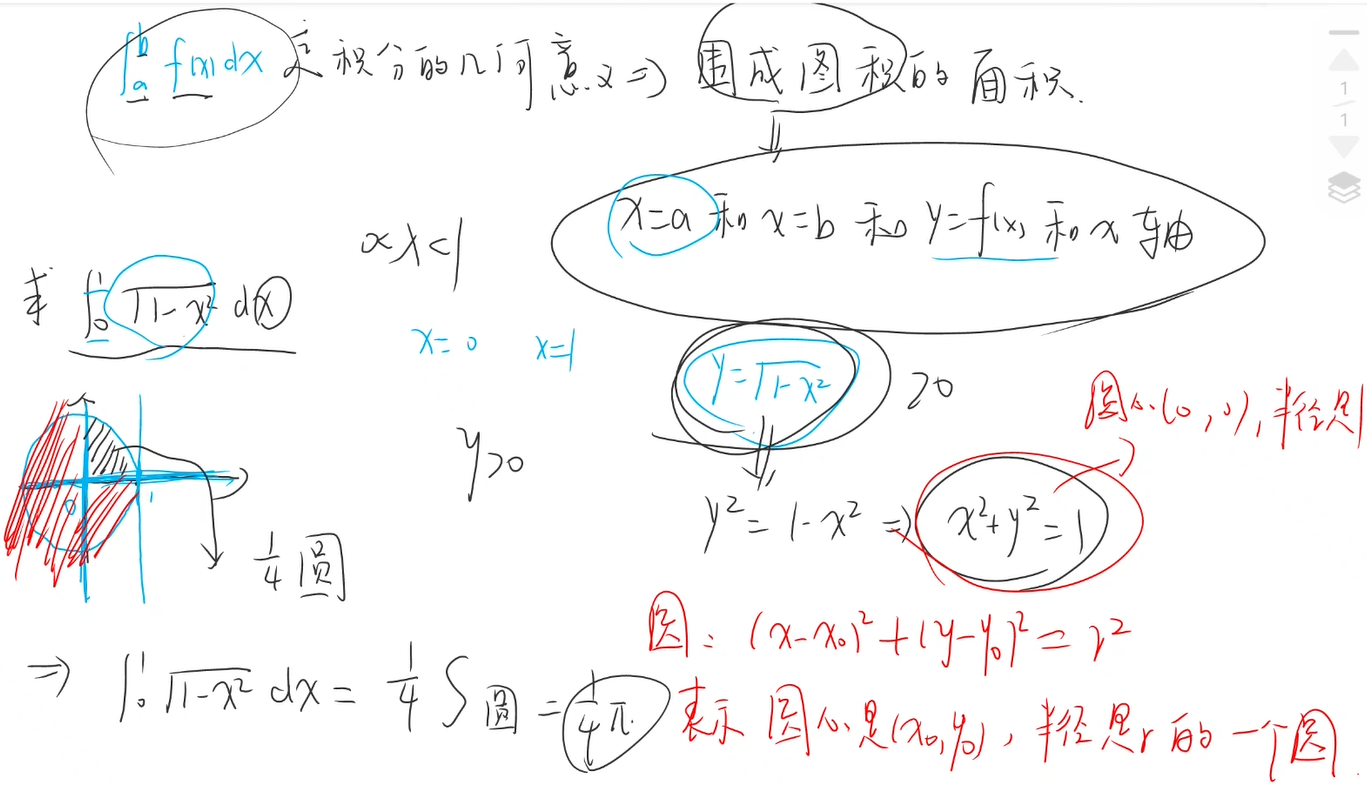 ∫ₐᵇ f(x) dx 定积分的几何意义 ⇒ 围成图积的面积.
⇓
x=a 和 x=b 和 y=f(x) 和 x 轴
0<x<1
求 ∫₀¹ √(1-x²) dx
x=0 x=1
y=√(1-x²) ≥0
圆心(0,0),半径是1
y>0
y² = 1-x² ⇒ x²+y²=1
0 1
1/4 圆
圆: (x-x₀)²+(y-y₀)²=r²
⇒ ∫₀¹ √(1-x²) dx = 1/4 S圆 = 1/4 π.
表示 圆心是(x₀,y₀), 半径是r的一个圆.
1
1